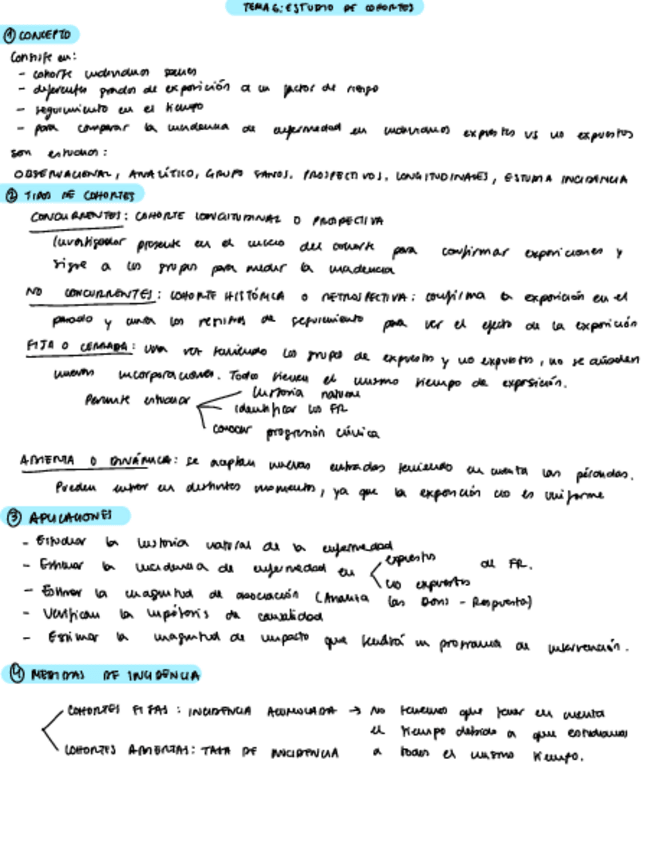 TEMA 6: ESTUDIO DE COHORTES
① CONCEPTO
Consiste en:
- cohorte individuos sanos
- diferentes grados de exposición a un factor de riesgo
- seguimiento en el tiempo
- para comparar la incidencia de enfermedad en individuos expuestos vs no expuestos
son estudios:
OBSERVACIONAL, ANALÍTICO, GRUPO SANOS, PROSPECTIVOS, LONGITUDINALES, ESTUDIA INCIDENCIA
② TIPOS DE COHORTES
CONCURRENTES: COHORTE LONGITUDINAL O PROSPECTIVA
Investigador presente en el inicio del cohorte para confirmar exposiciones y
sigue a los grupos para medir la incidencia
NO CONCURRENTES: COHORTE HISTÓRICA O RETROSPECTIVA: confirma la exposición en el
pasado y los registros de seguimiento para ver el efecto de la exposición
FIJA O CERRADA: una vez teniendo los grupos de expuestos y no expuestos, no se añaden
nuevas incorporaciones. Todos tienen el mismo tiempo de exposición.
Permite estudiar
historia natural
identificar los FR
conocer progresión clínica
ABIERTA O DINÁMICA: se aceptan nuevas entradas teniendo en cuenta las pérdidas.
Pueden entrar en distintos momentos, ya que la exposición no es uniforme
③ APLICACIONES
- Estudiar la historia natural de la enfermedad
- Estimar la incidencia de enfermedad en expuestos no expuestos al FR.
- Estimar la magnitud de asociación (Analiza las Dosis - Respuesta)
- Verifican la hipótesis de causalidad
- Estimar la magnitud de impacto que tendrá un programa de intervención.
④ MEDIDAS DE INCIDENCIA
COHORTES FIJAS: INCIDENCIA ACUMULADA → No tenemos que tener en cuenta
el tiempo debido a que estudiamos
COHORTES ABIERTAS: TASA DE INCIDENCIA a todos el mismo tiempo.